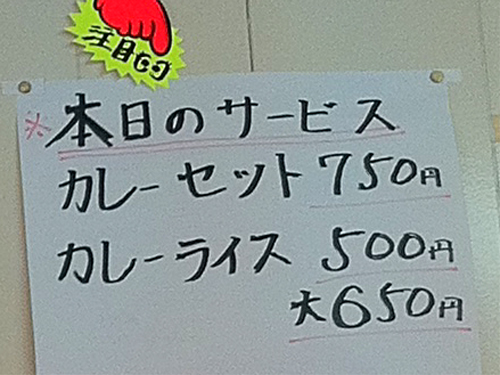 注目むり
※本日のサービス
カレーセット750円
カレーライス 500円
大650円